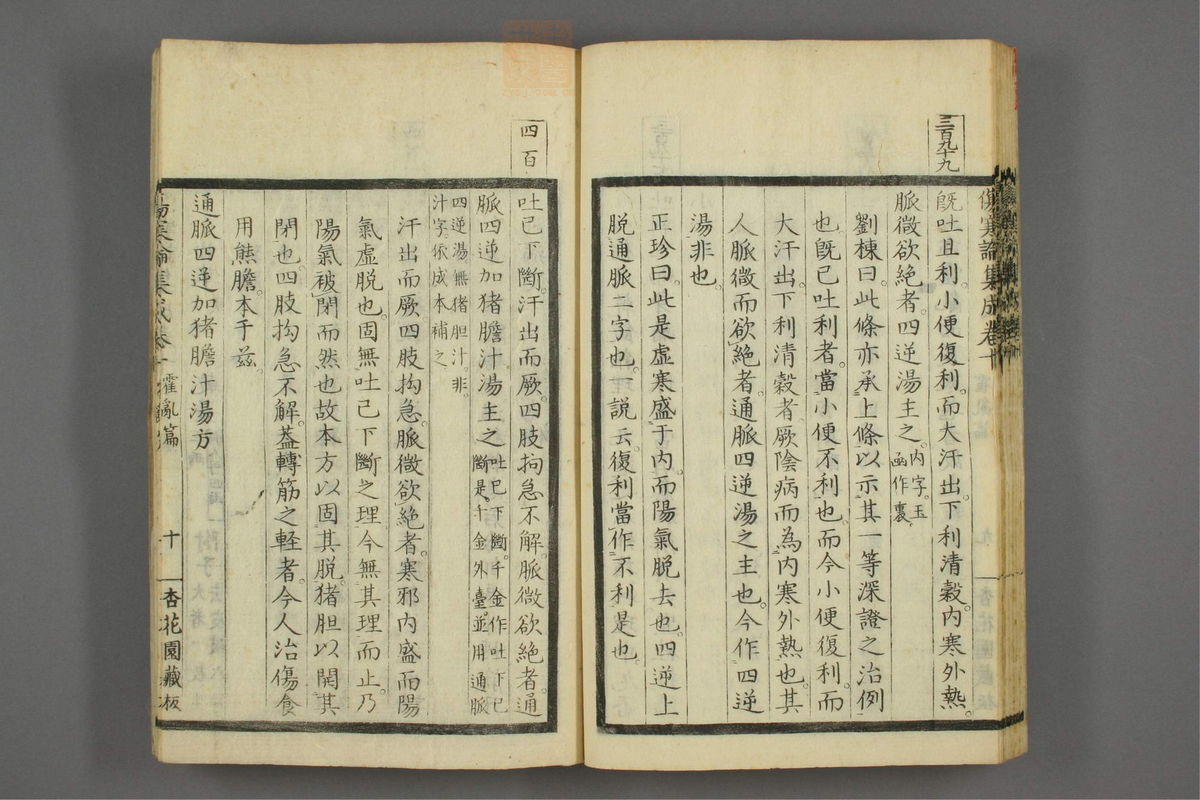 三百九十九
傷寒論集成卷十
既吐且利。小便復利。而大汗出。下利清穀。内寒外熱。
脈微欲絶者。四逆湯主之。内字。玉
函作裏
劉棟曰。此條亦承上條。以示其一等深證之治例
也。既已吐利者。當小便不利也。而今小便復利。而
大汗出。下利清穀者。厥陰病。而為内寒外熱也。其
人脈微而欲絶者。通脈四逆湯之主也。今作四逆
湯非也。
正珍曰。此是虚寒盛于内。而陽氣脱去也。四逆上
脱通脈二字也。説云。復利當作不利是也。
四百
吐已下斷。汗出而厥。四肢拘急不解。脈微欲絶者。通
脈四逆加猪膽汁湯主之 吐已下斷。千金作吐下已
斷是。千金外臺。並用通脈
四逆湯無猪胆汁。非。
汁字依成本補之
汗出而厥。四肢拘急。脈微欲絶者。寒邪内盛而陽
氣虚脱也。固無吐已下斷之理。今無其理而止。乃
陽氣被閉而然也。故本方以固其脱。猪胆以開其
閉也。四肢拘急不解。蓋轉筋之輕者。今人治傷食
用熊膽。本于兹。
通脈四逆加猪膽汁湯方
傷寒論集成卷十 霍亂篇 十 杏花園藏板